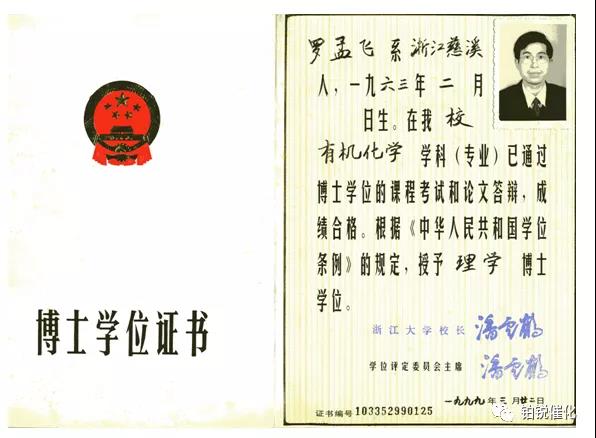 博士学位证书
罗孟飞 系浙江慈溪
人，一九六三年 二 月
日生。在我 校
有机化学 学科（专业）已通过
博士学位的课程考试和论文答辩，成
绩合格。根据《中华人民共和国学位
条例》的规定，授予 理学 博士
学位。
浙江大学校长 潘云鹤
学位评定委员会主席 潘云鹤
一九九九年三月廿二日
证书编号 103352990125
铂锐催化